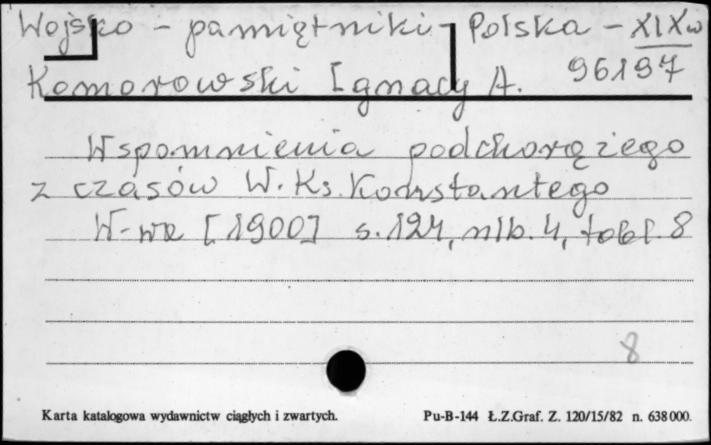 Wojsko - pamiętniki - Polska - XIXw
96197
Komorowski Ignacy A.
Wspomnienia podchorążego
z czasów W. Ks. Konstantego
W-wa [1900] s. 124, nlb. 4, tabl. 8
8
Karta katalogowa wydawnictw ciągłych i zwartych. Pu-B-144 Ł.Z.Graf. Z. 120/15/82 n. 638000.